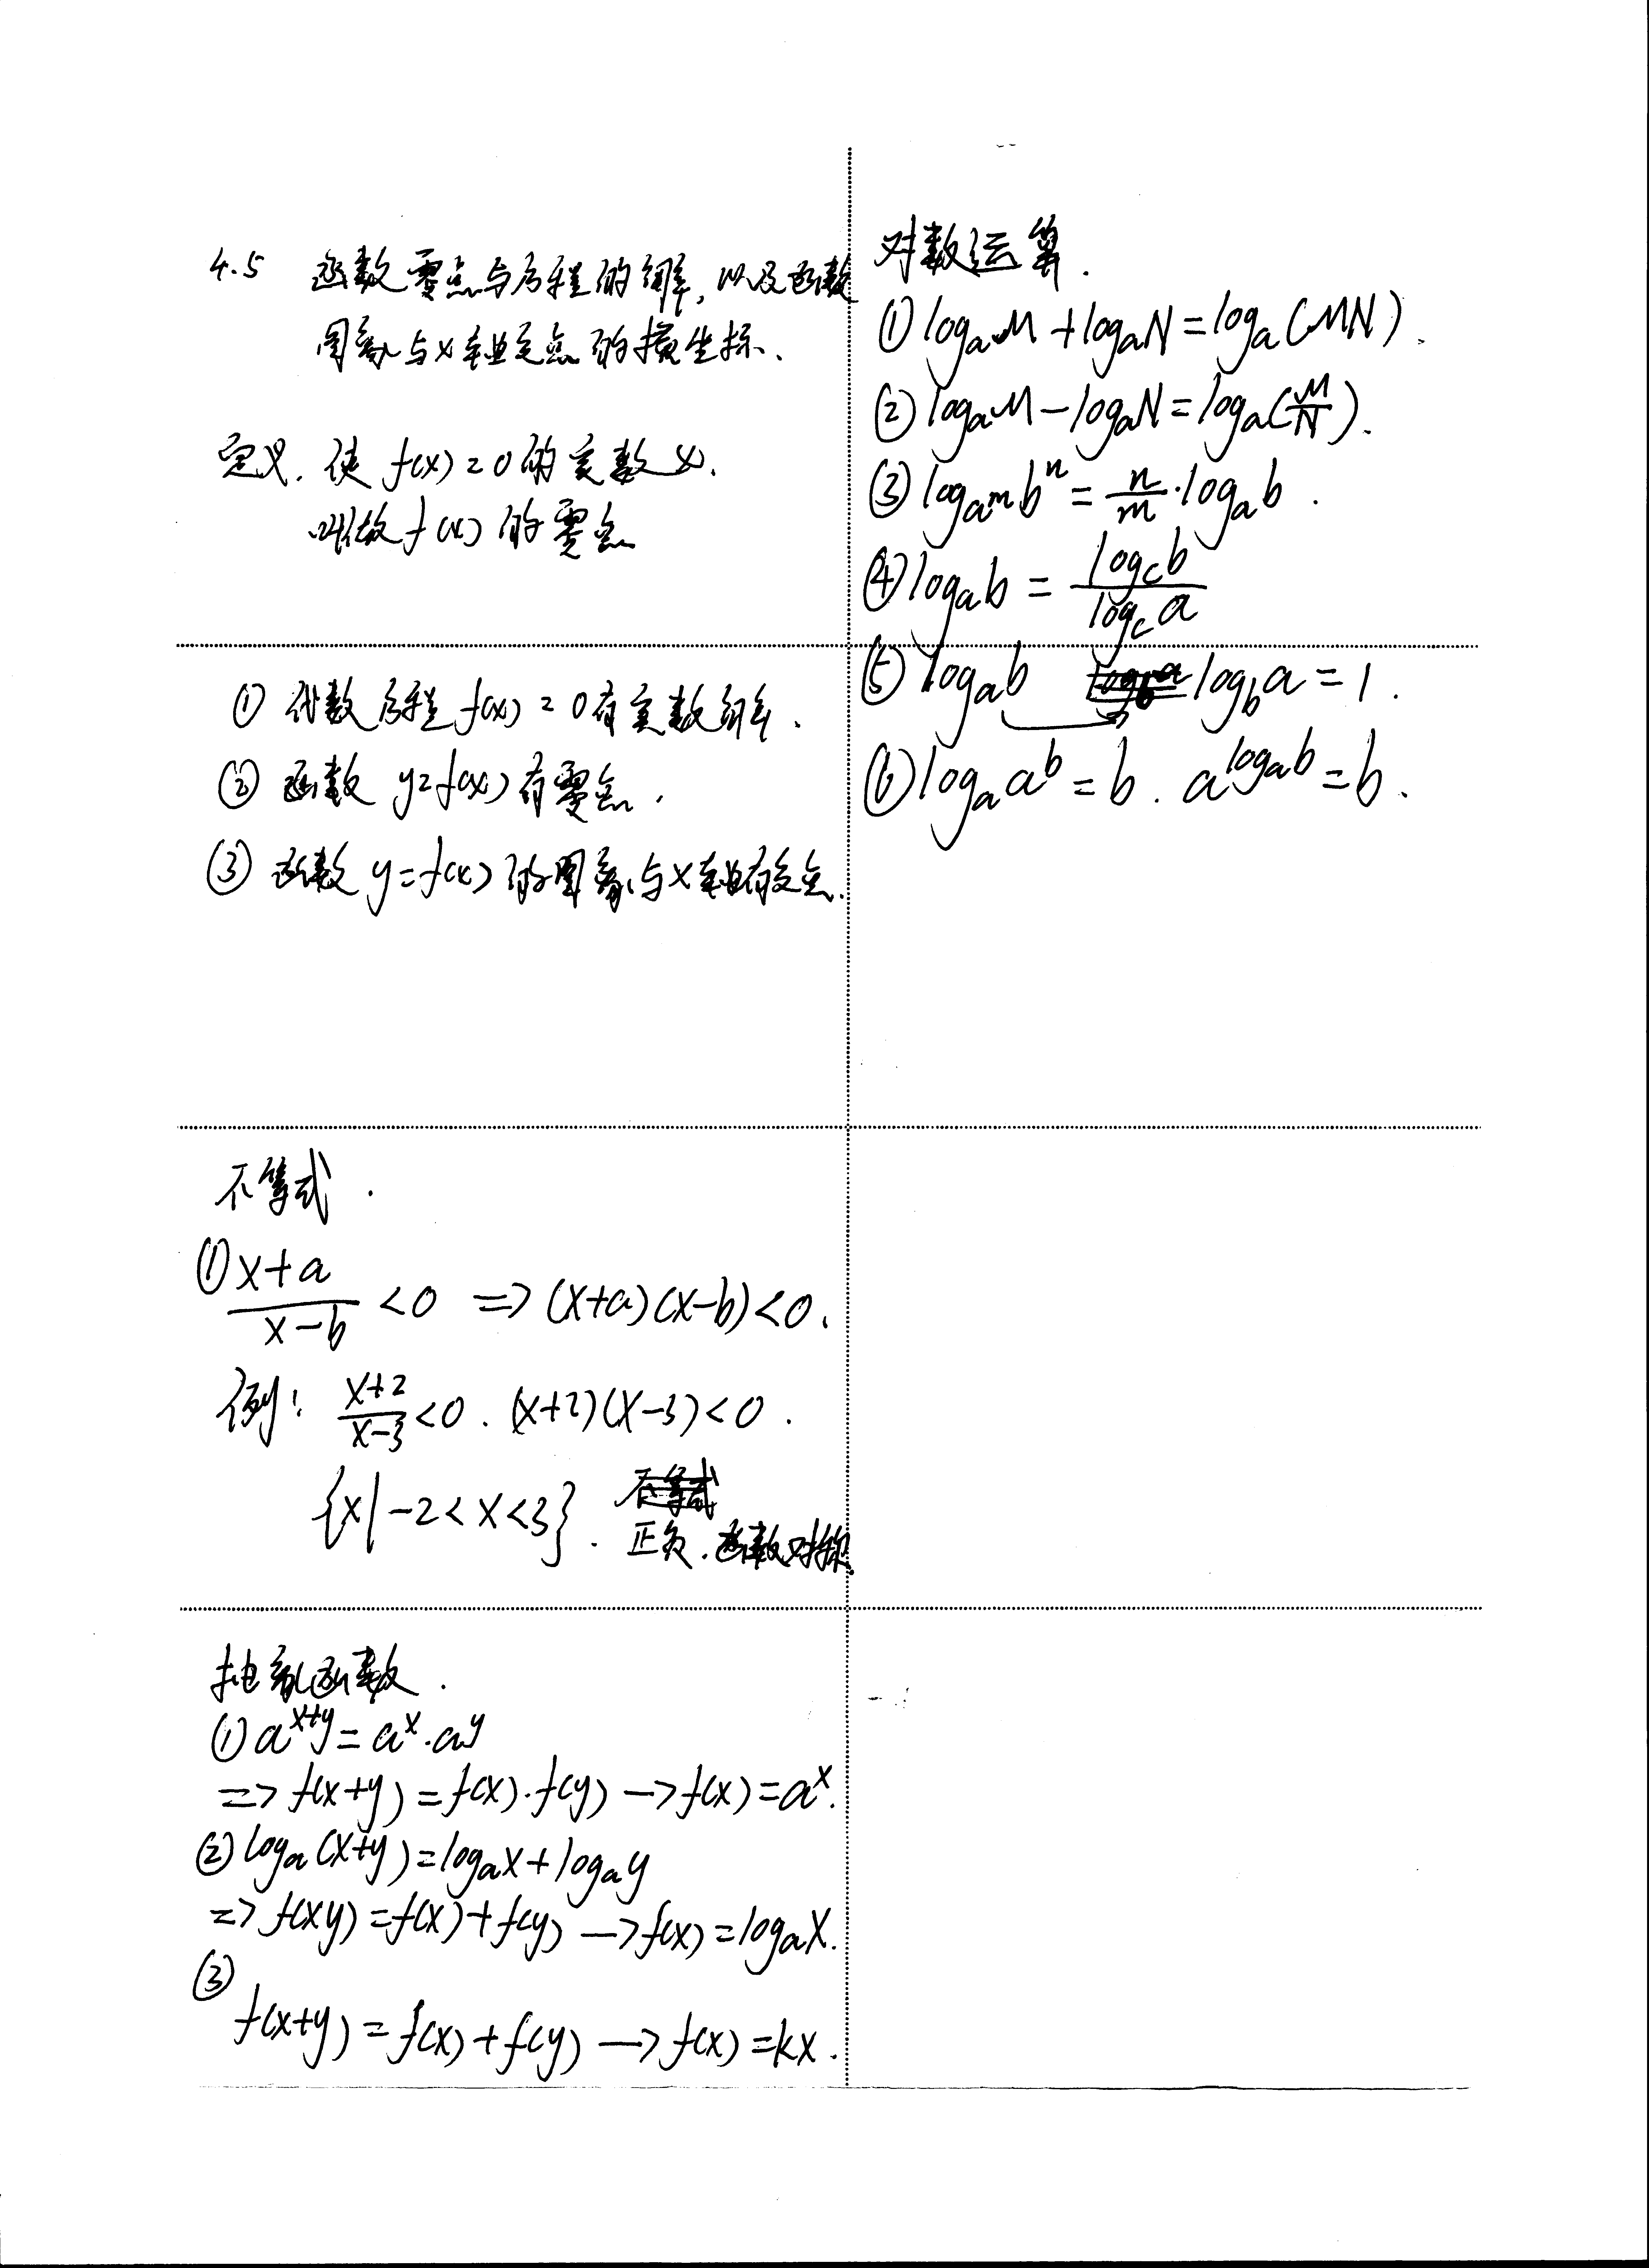 4.5 函数零点与方程的解,以及函数
图象与x轴交点的横坐标.
定义.使 f(x)=0的实数 x.
叫做f(x)的零点
① 代数方程 f(x)=0有实数解.
② 函数 y=f(x)有零点.
③ 函数 y=f(x)的图象与x轴有交点.
不等式.
① \frac{x+a}{x-b}<0 => (x+a)(x-b)<0.
例: \frac{x+2}{x-3}<0. (x+2)(x-3)<0.
{x|-2<x<3}.
正负.函数对称.
抽象函数.
① a^{x+y}=a^x·a^y
=> f(x+y)=f(x)·f(y) —> f(x)=a^x.
② log_a(x+y)=log_a x+log_a y
=> f(xy)=f(x)+f(y) —> f(x)=log_a x.
③
f(x+y)=f(x)+f(y) —> f(x)=kx.
对数运算.
① log_a M+log_a N=log_a(MN).
② log_a M-log_a N=log_a(\frac{M}{N}).
③ log_{a^m} b^n=\frac{n}{m}·log_a b.
④ log_a b=\frac{log_c b}{log_c a}
⑤ log_a b log_b a=1.
⑥ log_a a^b=b. a^{log_a b}=b.